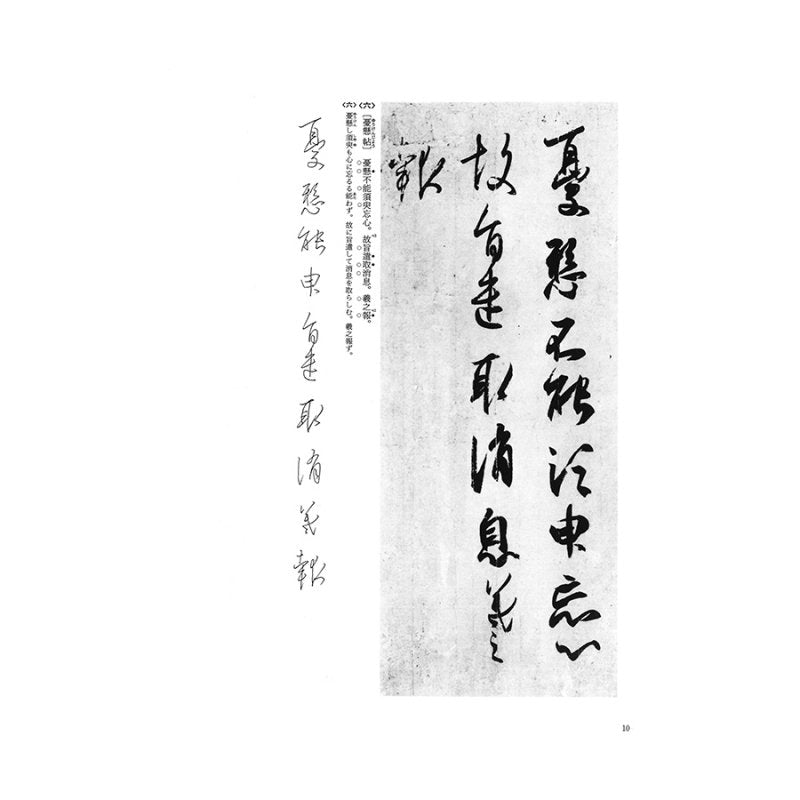 憂懸不能須臾忘心
故旨遣取消息羲之
報
〈六〉［憂懸帖］ 憂懸不能須臾忘心。故旨遣取消息。羲之報。
〈六〉憂懸し須臾も心に忘るる能わず。故に旨遣して消息を取らしむ。羲之報ず。
憂懸能臾旨遣取消羲報
10